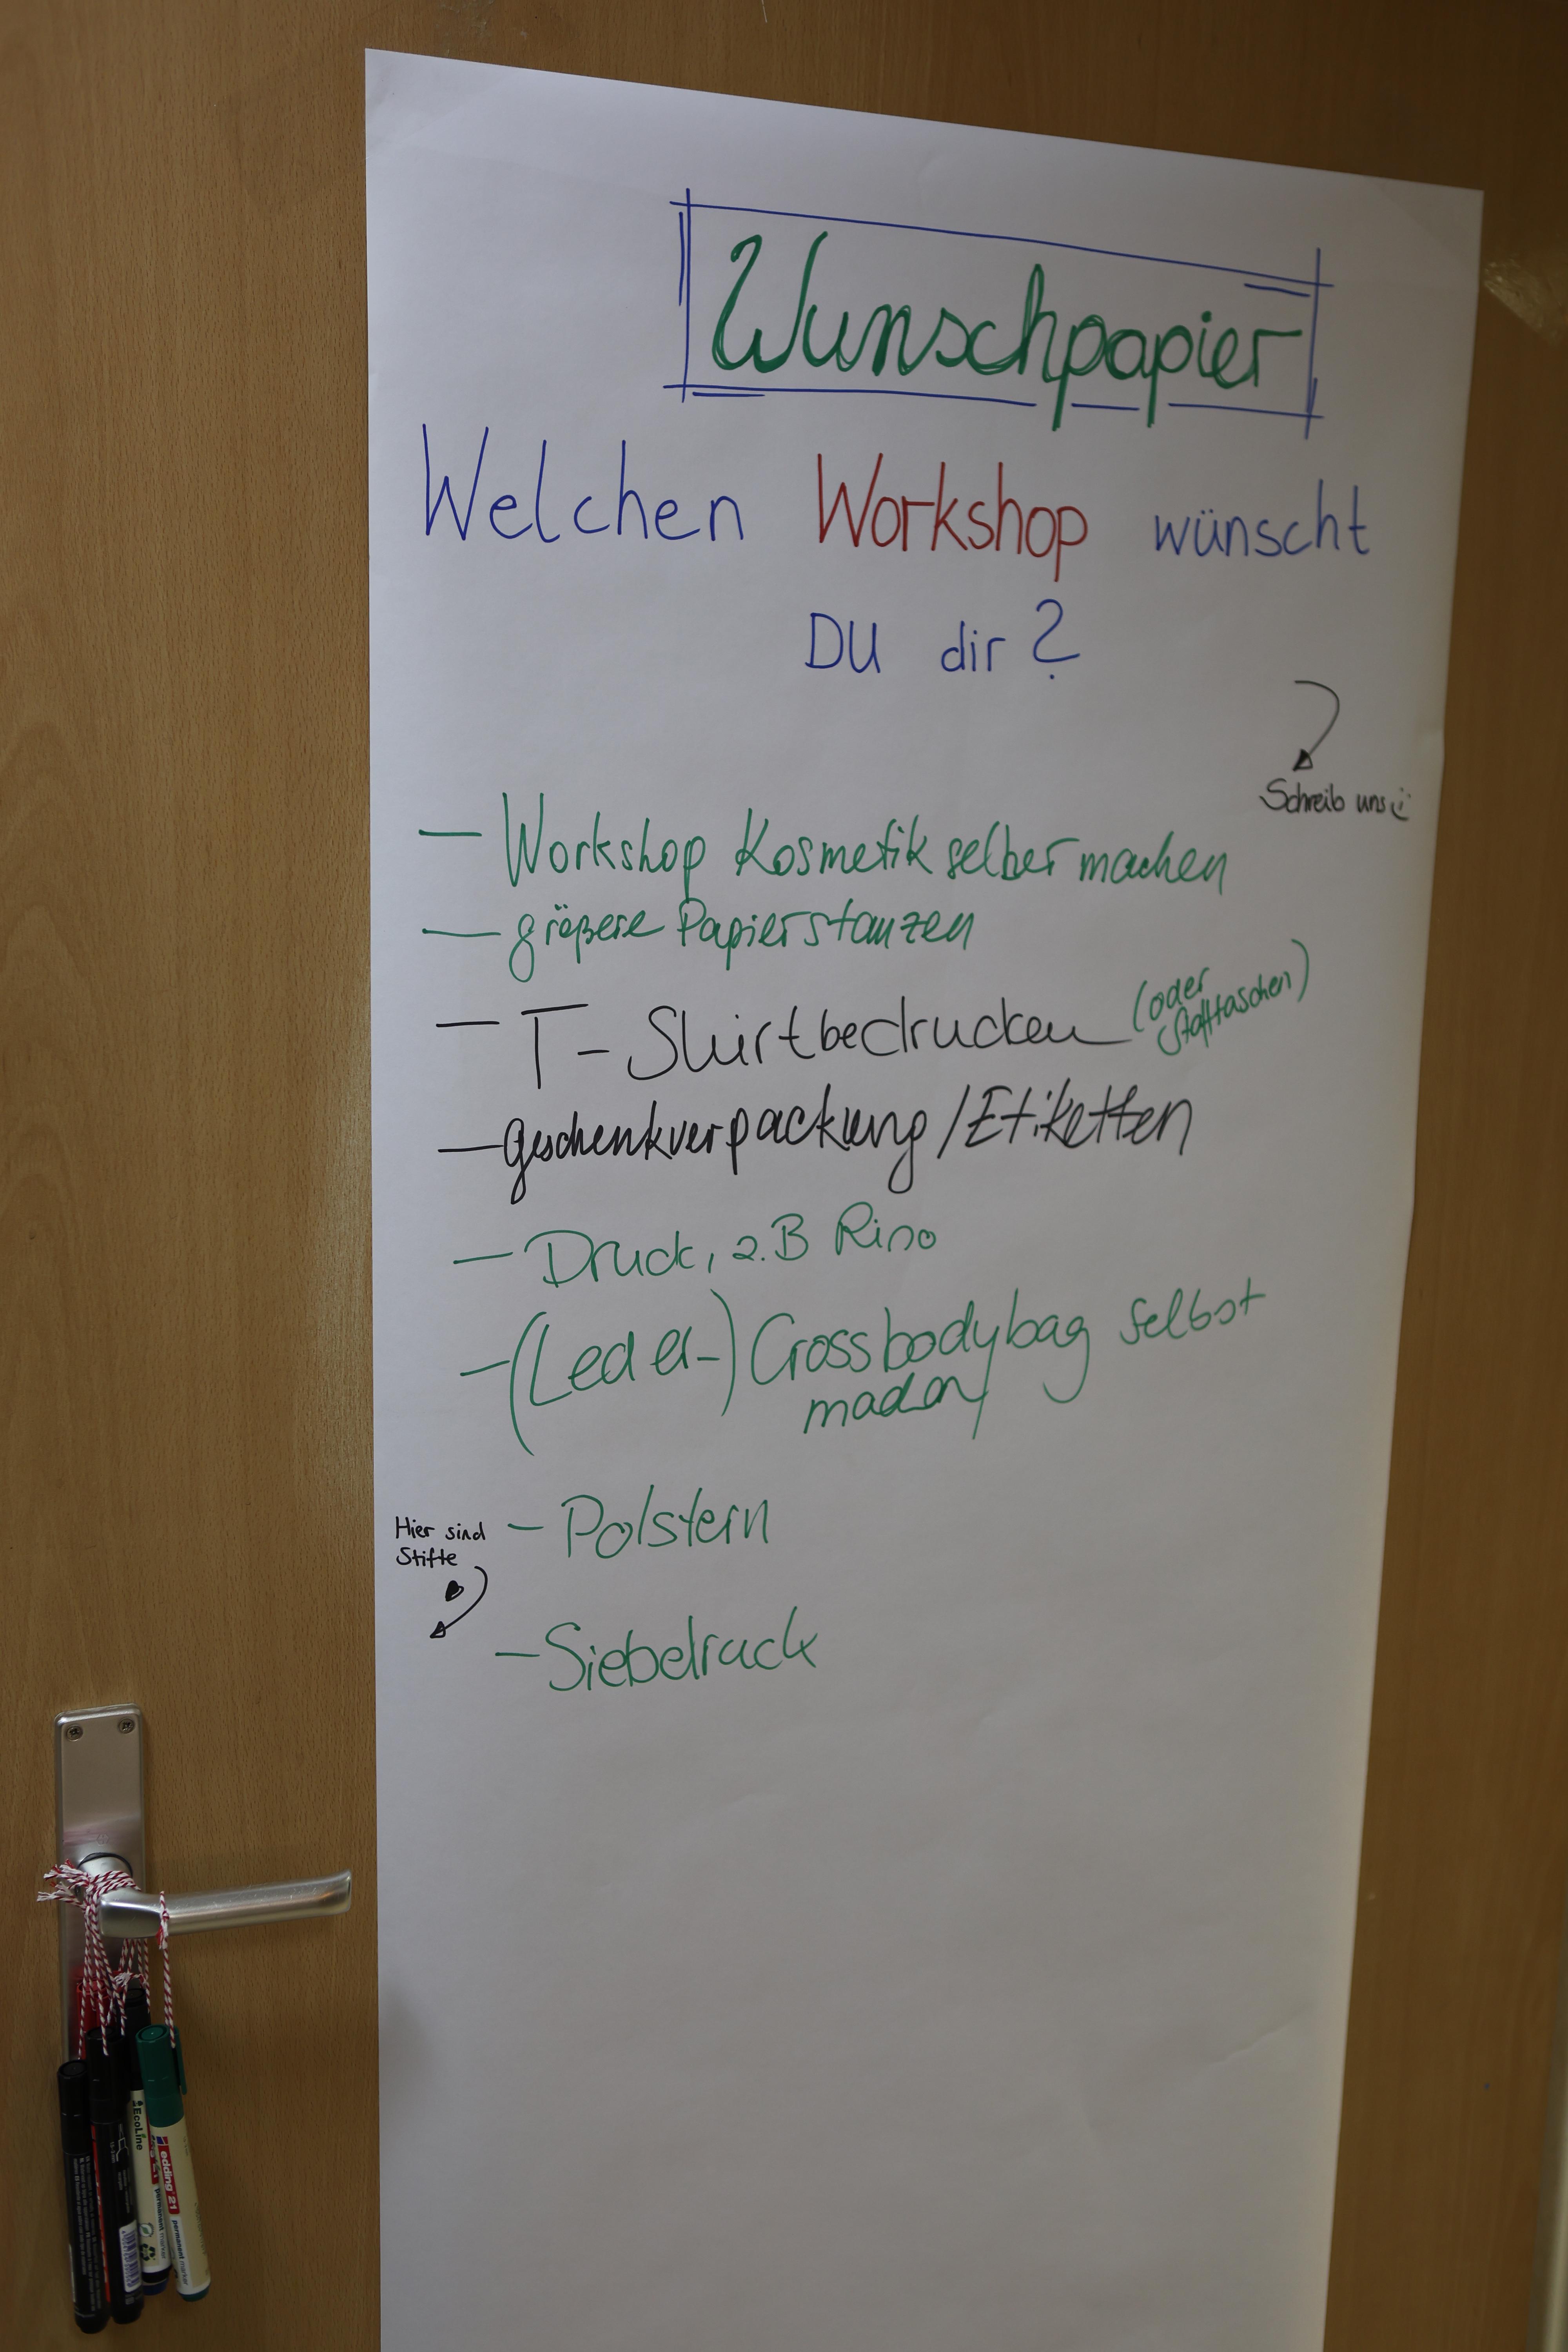 Wunschpapier
Welchen Workshop wünscht
DU dir?
Schreib uns
— Workshop Kosmetik selber machen
— größere Papierstanzen
— T-Shirtbedrucken (oder
Stofftaschen)
— Geschenkverpackung / Etiketten
— Druck, z.B Riso
— (Leder-) Crossbodybag selbst
machen
Hier sind
Stifte
— Polstern
— Siebdruck
EcoLine
edding 21
permanent marker